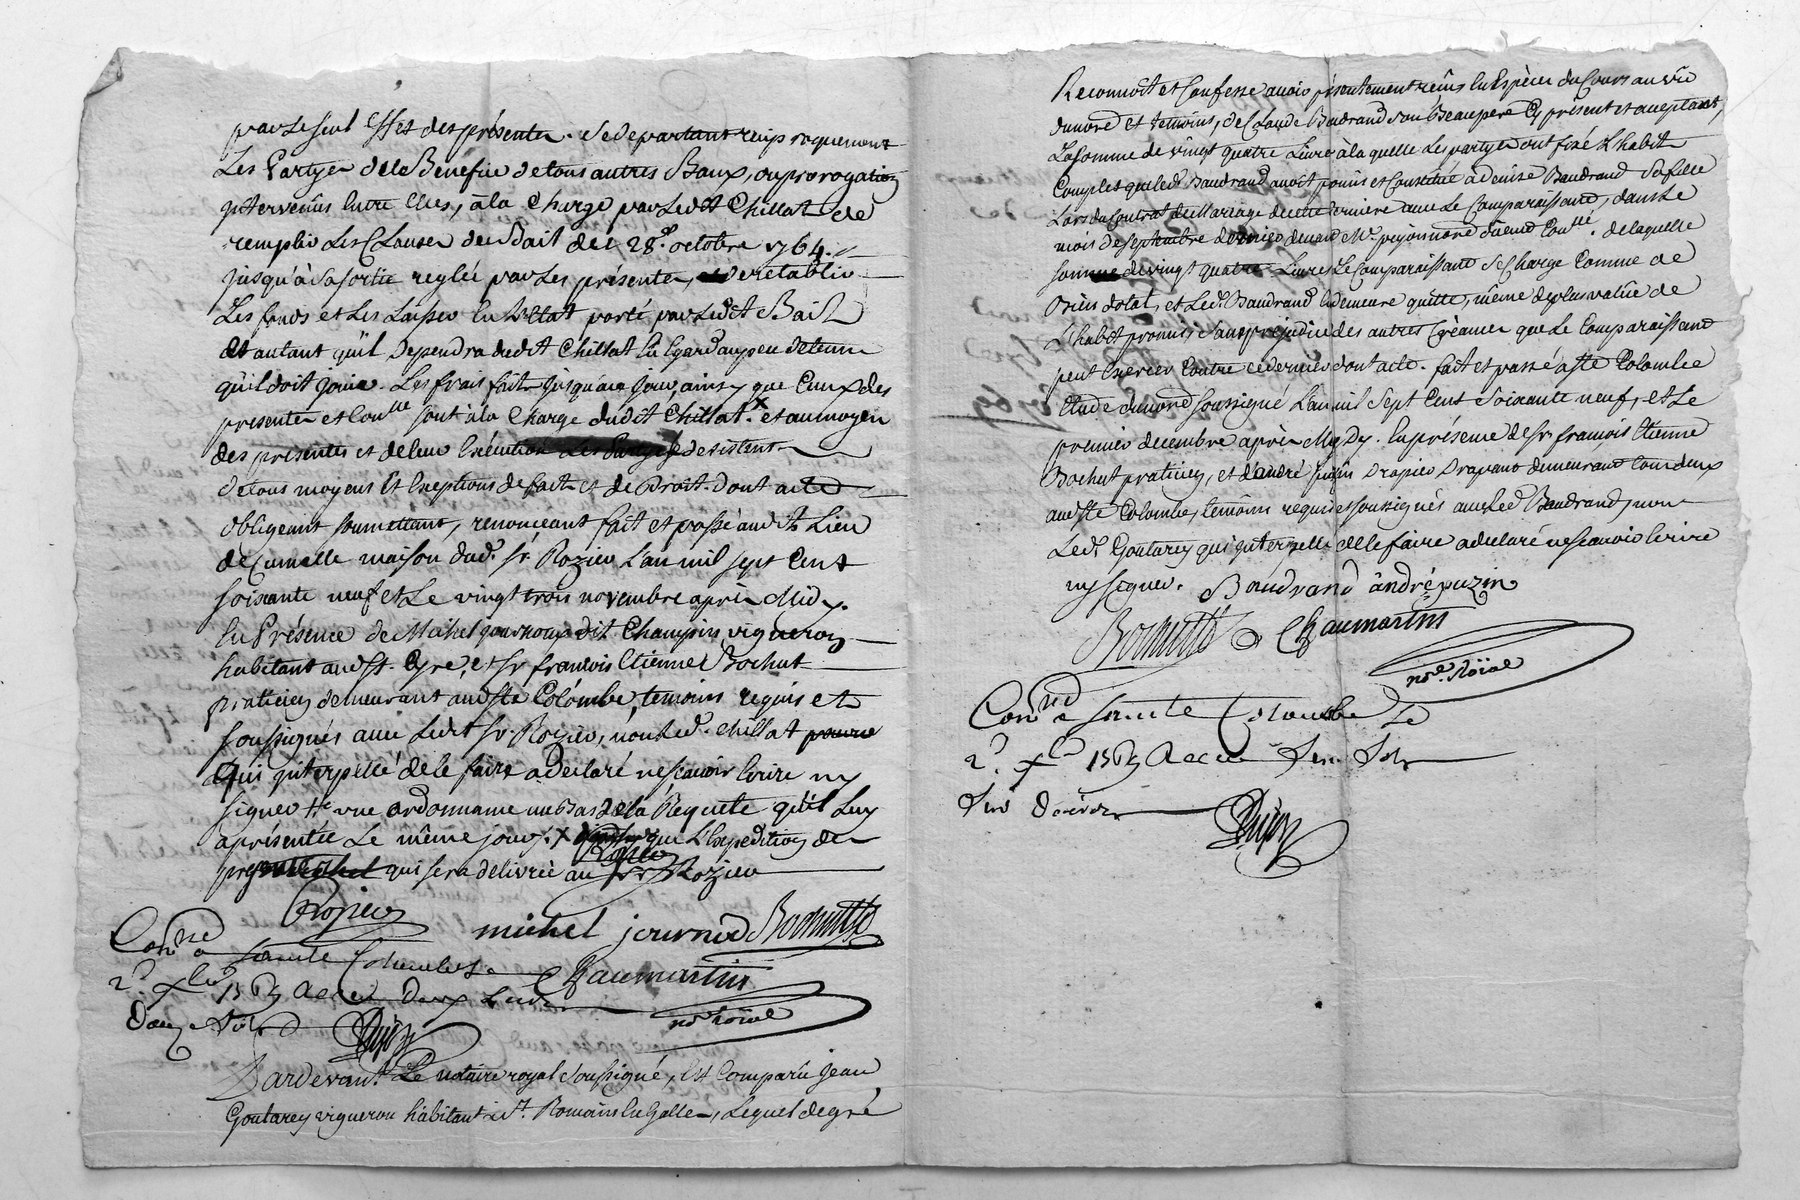 par le seul effet des présentes. se departant reciproquement
Les Partyes de le Benefice de tous autres Baux, ou prorogation
intervenûs entre Elles, à la charge par Ledit Chillat de
remplir Les Clauses du Bail dud. 28e. octobre 1764.
jusqu'à sa sortie reglée par Les présentes, de retablir
Les fonds et Les Laisser en L'Etat porté par Ledit Bail
Et autant qu'il dependra dudit Chillat En Egard au peu de tems
qu'il doit jouir. Les frais faits jusqu'a ce jour, ainsy que Ceux des
presentes et Conlle sont à la Charge dudit Chillat x et au moyen
des presentes et de leur Exécution Les Partyes se desistent
de tous moyens Et Exeptions de fait et de Droit. Dont acte
obligeant soumettant, renonceant fait et passé audit Lieu
de Cumelle maison dud. sr. Rozier L'an mil sept Cent
soixante neuf et Le vingt trois novembre après Midy.
En Présence de Michel journoux dit Champin vigneron
habitant aud. st. Cyre, et sr. françois Etienne Bochut
praticien demeurant aud. ste Colombe, temoins requis et
soussignés avec Ledit sr. Rozier, non Led. Chillat
Qui interpellé de le faire a déclaré ne scavoir Ecrire ny
signer vue ordonnance au Bas de la Requete qu'il Luy
a présentée Le même jour. x que L'Expedition des
qui sera delivrée au sr. Rozier
Rozier
michel journoux Bochutt
Conrlé a sainte Colombe Le
2e. xbre 1769 Reçu deux Livres
Douze sols
Chaumartin
no.re roïal
Pardevant Le notaire royal soussigné, Est Comparu jean
Goutarey vigneron habitant à st. Romain En Galle, Lequel de gré
Reconnoît et Confesse avoir présentement reçus En Espèces du Cours au vû
du nore et temoins, de Claude Baudrand son Beaupere Cy présent et acceptant,
La somme de vingt quatre Livres à la quelle Les partyes ont fixé L'habit
Complet que led. Baudrand avoit promis et Constitué à denise Baudrand sa fille
Lors du Contrat de Mariage de cette derniere avec Le Comparaissant, dans Le
mois de septembre dernier devant Me. nore duement Conllé. de laquelle
somme de vingt quatre Livres Le Comparaissant se Charge Comme de
Biens dotal, et Led. Baudrand En demeure quitte, même de plus valüe de
L'habit promis, sans préjudice des autres Créances que Le Comparaissant
peut Exercer Contre ce dernier dont acte. fait et passé a ste Colombe
Etude du nore soussigné L'an mil sept Cent soixante neuf, et Le
premier decembre après Midy. En présence de sr. françois Etienne
Bochut praticien, et d'andré puzin drapier drapant demeurant tous deux
aud. ste Colombe, temoins requis et soussignés avec Led Baudrand, non
Led. Goutarey qui interpellé de le faire a declaré ne scavoir Ecrire
ny signer. Baudrand andré puzin
Bochutt Chaumartin
no.re Roïal
Conrlé a sainte Colombe Le
2e. xbre 1769 Reçu